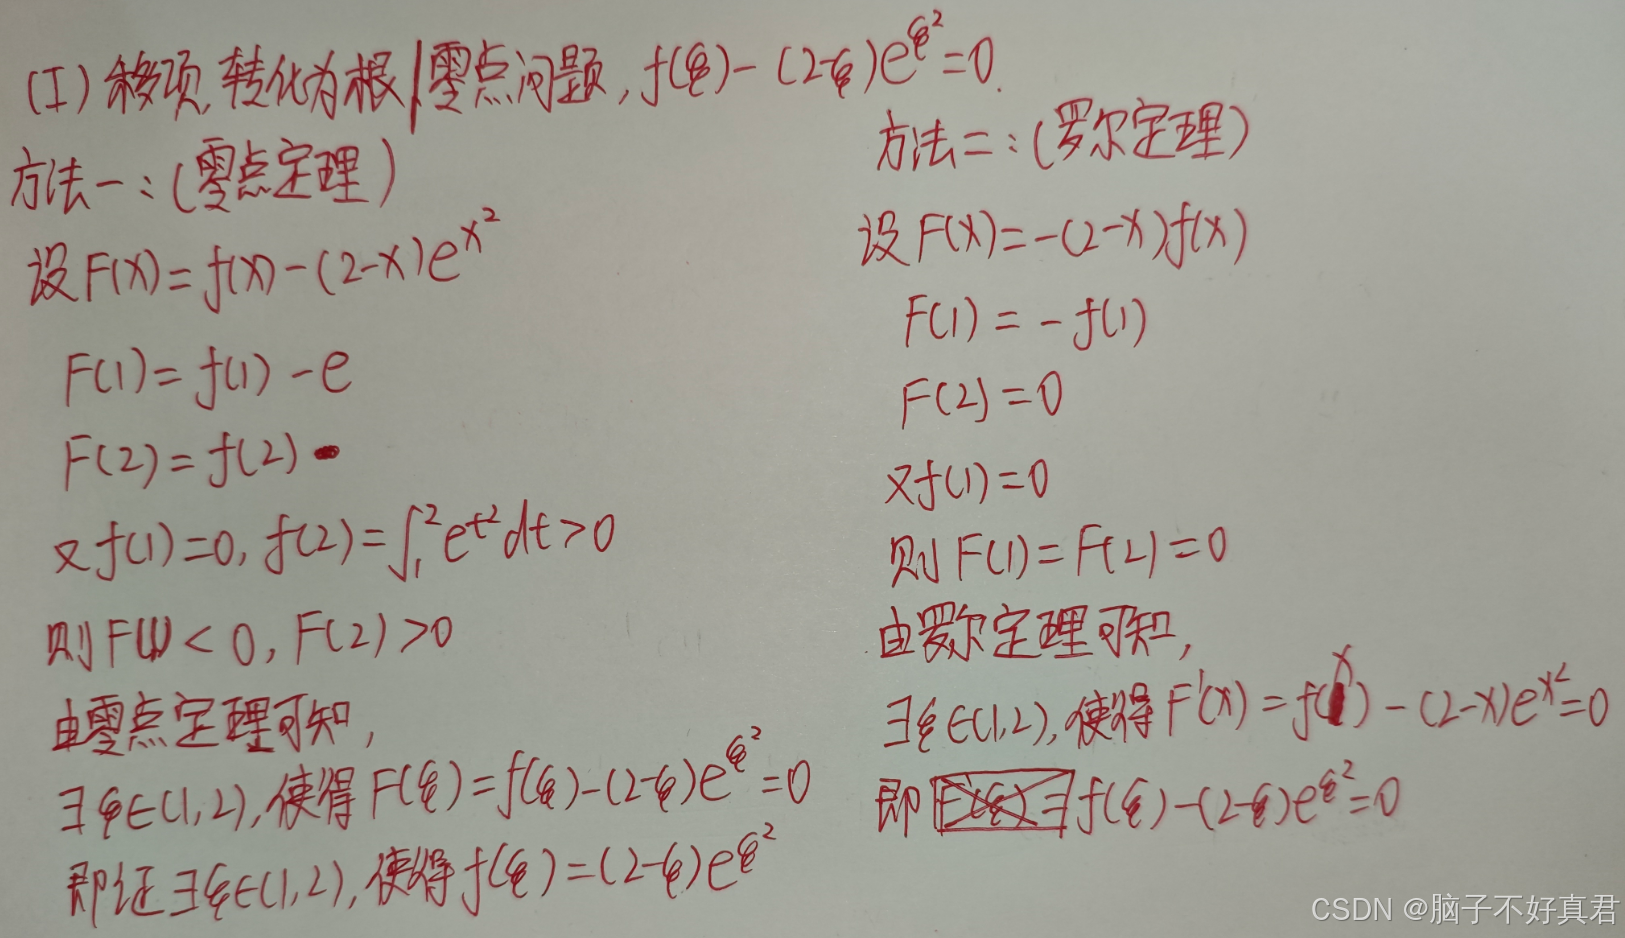 (I) 移项,转化为根/零点问题, f(ξ)-(2-ξ)e^{ξ^2}=0.
方法一:(零点定理)
设F(x)=f(x)-(2-x)e^{x^2}
F(1)=f(1)-e
F(2)=f(2)
又f(1)=0, f(2)=∫_1^2 e^{t^2}dt>0
则F(1)<0, F(2)>0
由零点定理可知,
∃ξ∈(1,2),使得F(ξ)=f(ξ)-(2-ξ)e^{ξ^2}=0
即证∃ξ∈(1,2),使得f(ξ)=(2-ξ)e^{ξ^2}
方法二:(罗尔定理)
设F(x)=-(2-x)f(x)
F(1)=-f(1)
F(2)=0
又f(1)=0
则F(1)=F(2)=0
由罗尔定理可知,
∃ξ∈(1,2),使得F'(x)=f(x)-(2-x)e^{x^2}=0
即f(ξ)-(2-ξ)e^{ξ^2}=0
CSDN @脑子不好真君